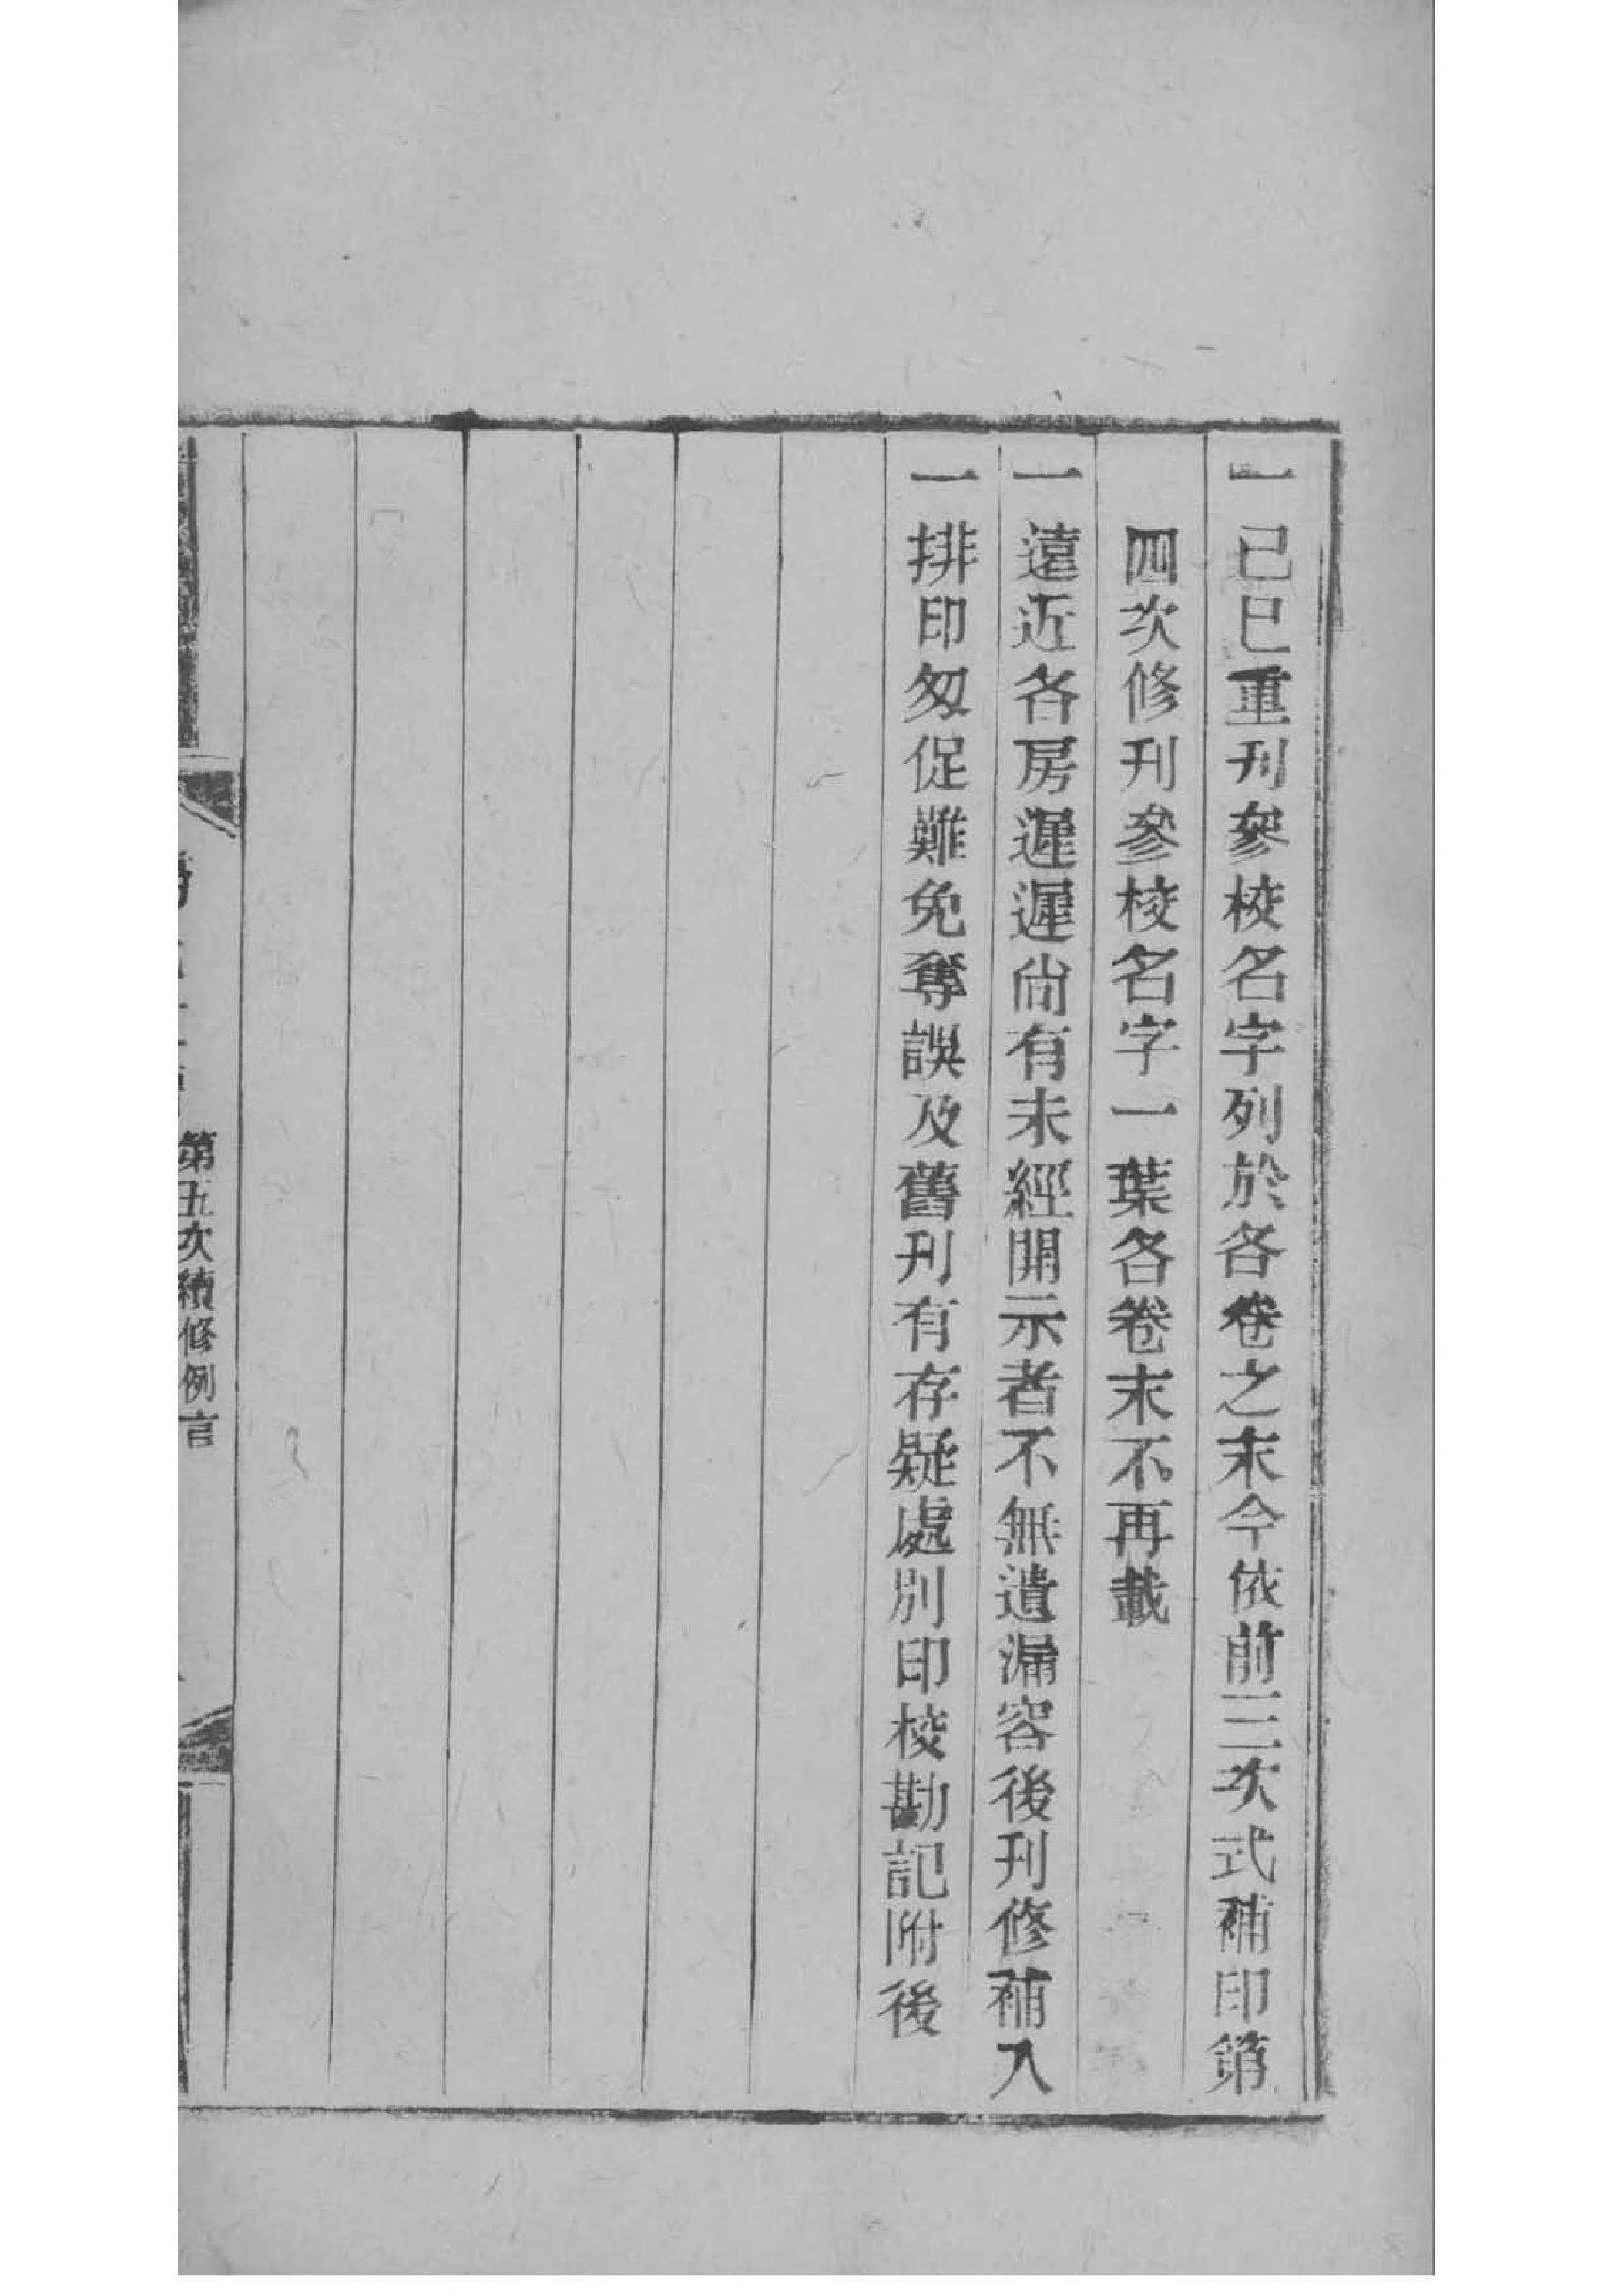 一己巳重刊參校名字列於各卷之末今依前三次式補印第
四次修刊參校名字一葉各卷末不再載
一遠近各房遲遲尙有未經開示者不無遺漏容後刊修補入
一排印匆促難免奪誤及舊刊有存疑處別印校勘記附後
第五次續修例言